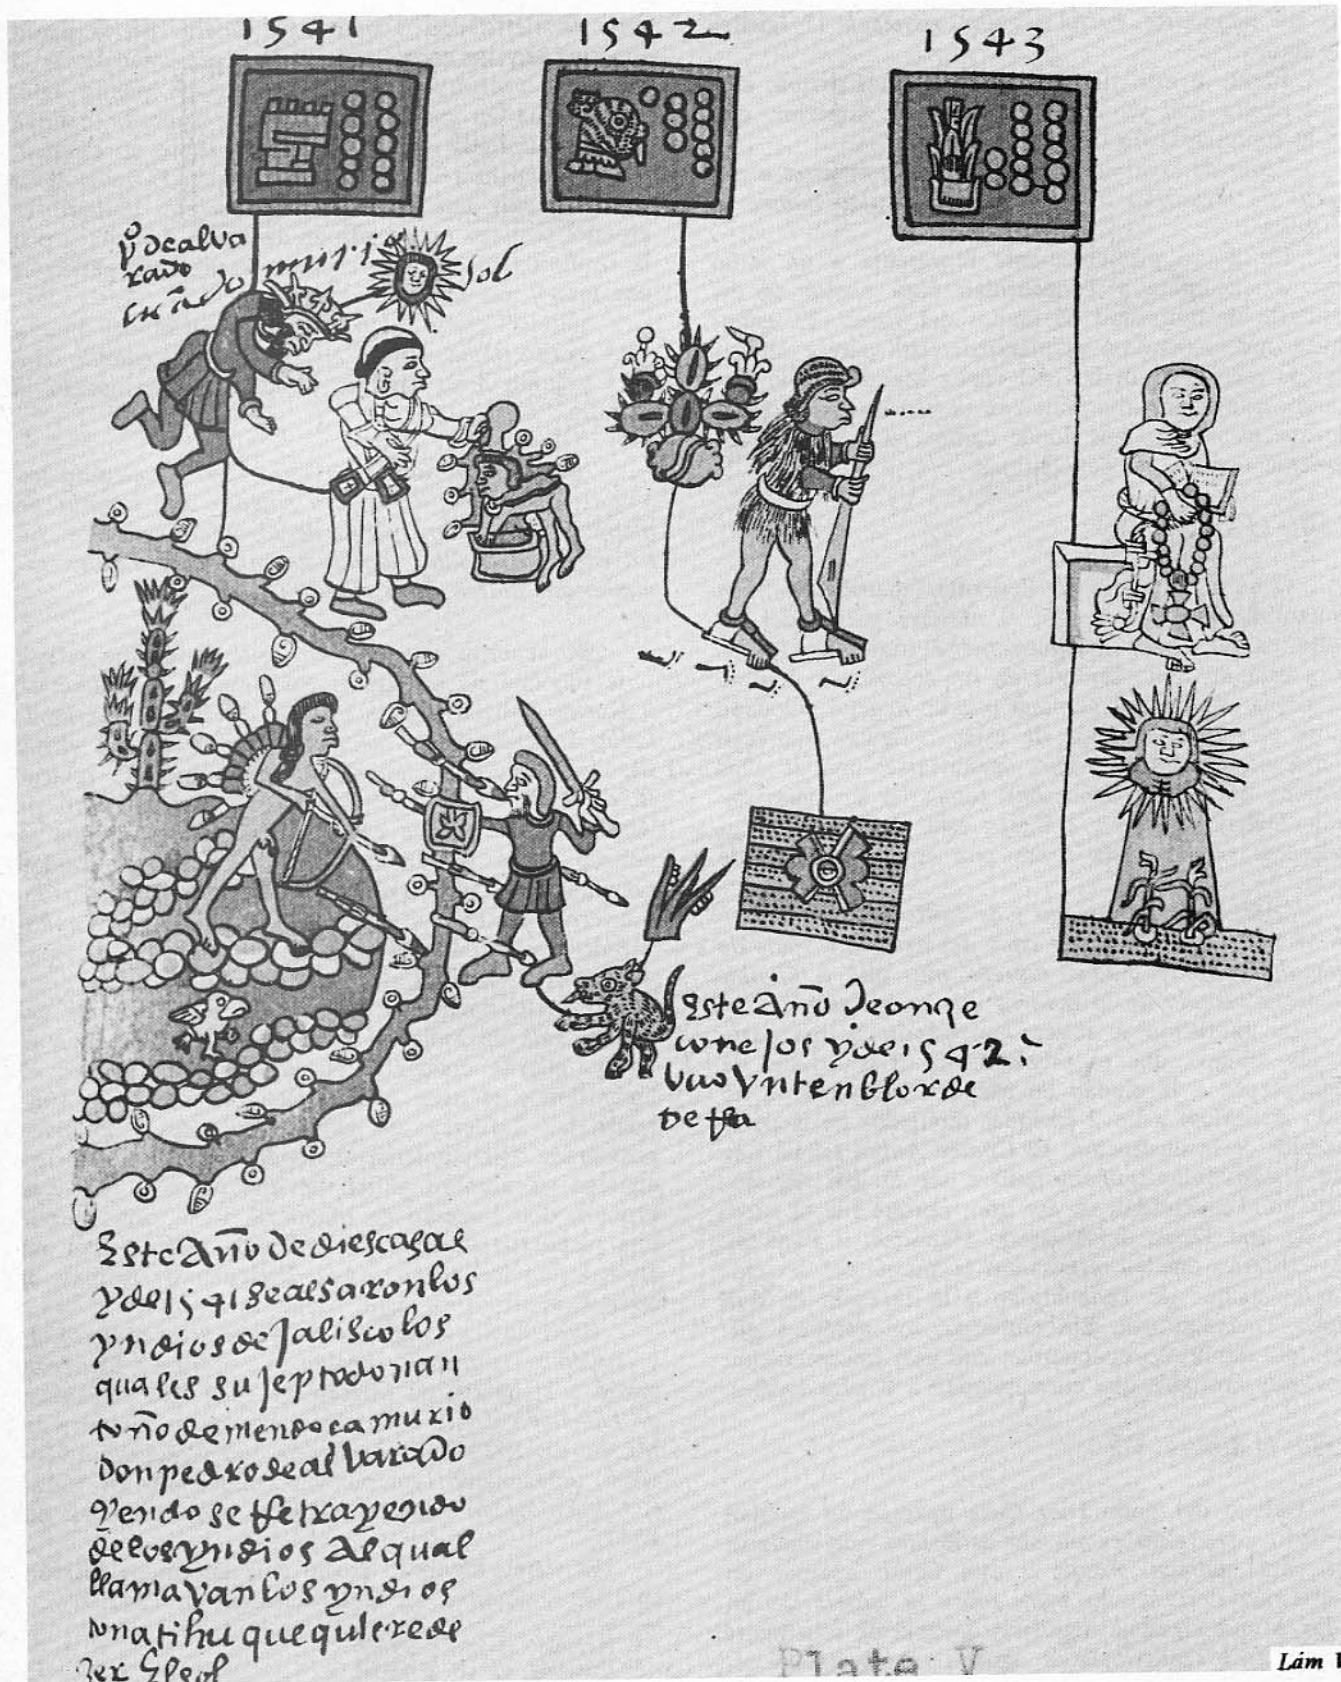 1541
1542
1543
po de alva
rado
cuãdo murio
sol
Este Año de onze
conejos y de 1542
uvo vn tenblor de
Este Año de diescasas
y de 1541 se alsaron los
yndios de Jalisco los
quales sujepto don an
toño de mendoca murio
Don pedro de alvarado
yendo se Retrayendo
de los yndios Al qual
llamavan los yndios
tonatihu que quiere de
zer El sol
Plate V
Lám V